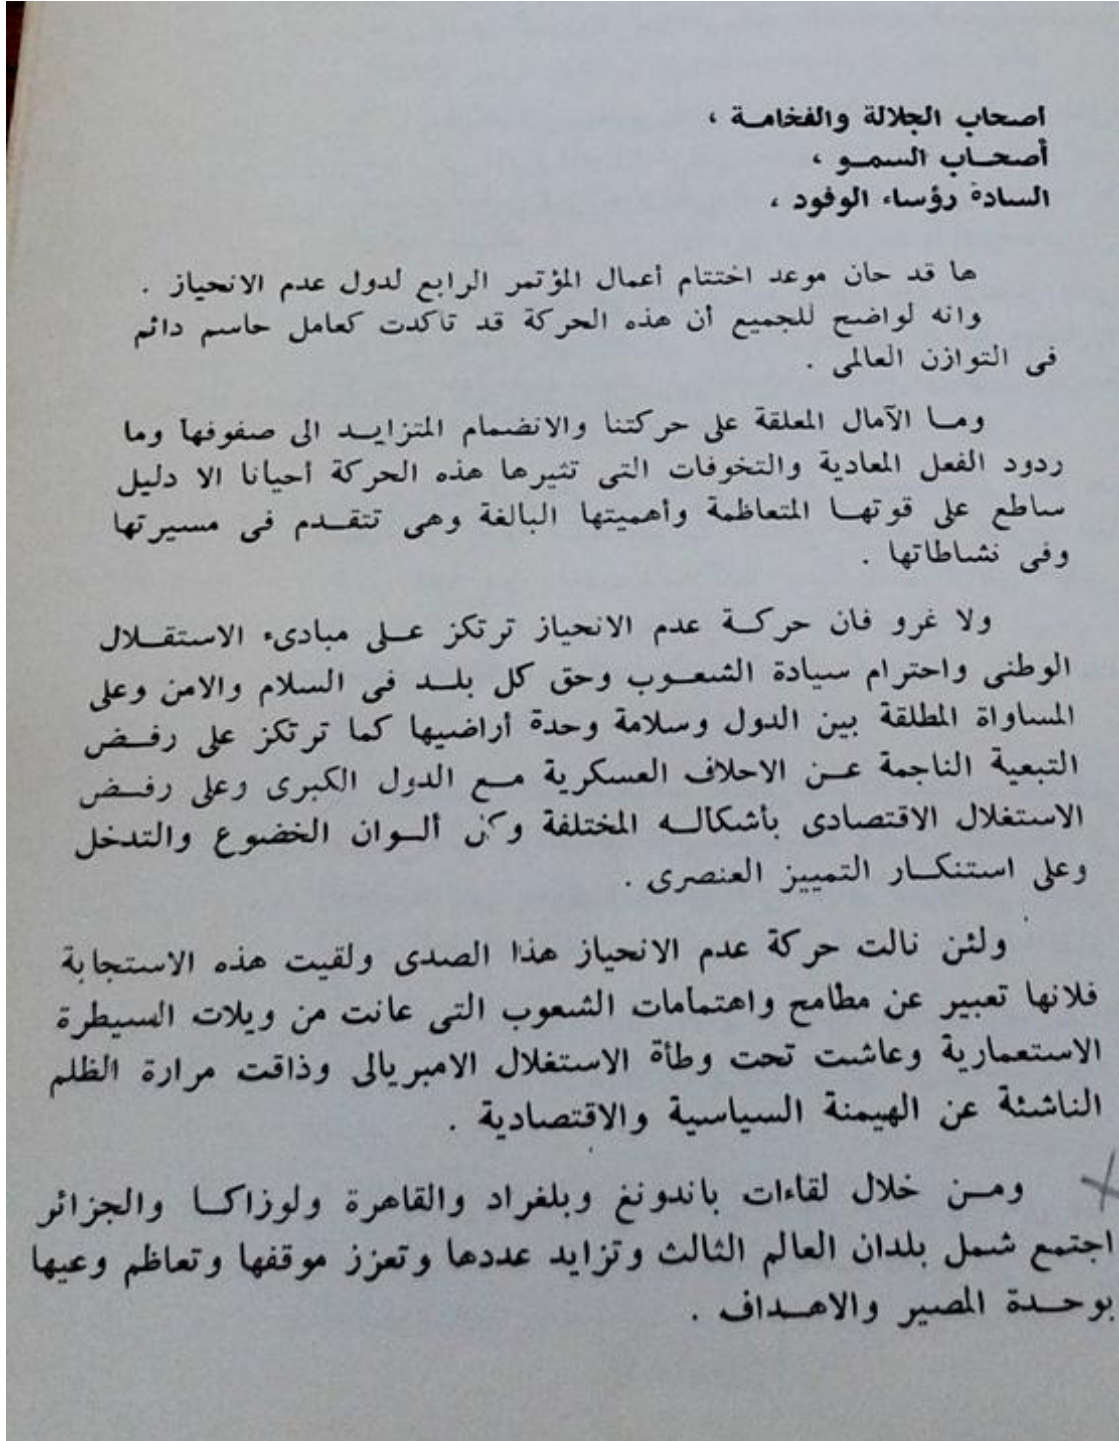 اصحاب الجلالة والفخامة ،
أصحاب السمو ،
السادة رؤساء الوفود ،
ها قد حان موعد اختتام أعمال المؤتمر الرابع لدول عدم الانحياز .
وانه لواضح للجميع أن هذه الحركة قد تاكدت كعامل حاسم دائم
فى التوازن العالمى .
وما الآمال المعلقة على حركتنا والانضمام المتزايد الى صفوفها وما
ردود الفعل المعادية والتخوفات التى تثيرها هذه الحركة أحيانا الا دليل
ساطع على قوتها المتعاظمة وأهميتها البالغة وهى تتقدم فى مسيرتها
وفى نشاطاتها .
ولا غرو فان حركة عدم الانحياز ترتكز على مبادىء الاستقلال
الوطنى واحترام سيادة الشعوب وحق كل بلد فى السلام والامن وعلى
المساواة المطلقة بين الدول وسلامة وحدة أراضيها كما ترتكز على رفض
التبعية الناجمة عن الاحلاف العسكرية مع الدول الكبرى وعلى رفض
الاستغلال الاقتصادى بأشكاله المختلفة وكل ألوان الخضوع والتدخل
وعلى استنكار التمييز العنصرى .
ولئن نالت حركة عدم الانحياز هذا الصدى ولقيت هذه الاستجابة
فلانها تعبير عن مطامح واهتمامات الشعوب التى عانت من ويلات السيطرة
الاستعمارية وعاشت تحت وطأة الاستغلال الامبريالى وذاقت مرارة الظلم
الناشئة عن الهيمنة السياسية والاقتصادية .
ومن خلال لقاءات باندونغ وبلغراد والقاهرة ولوزاكا والجزائر
اجتمع شمل بلدان العالم الثالث وتزايد عددها وتعزز موقفها وتعاظم وعيها
بوحدة المصير والاهداف .